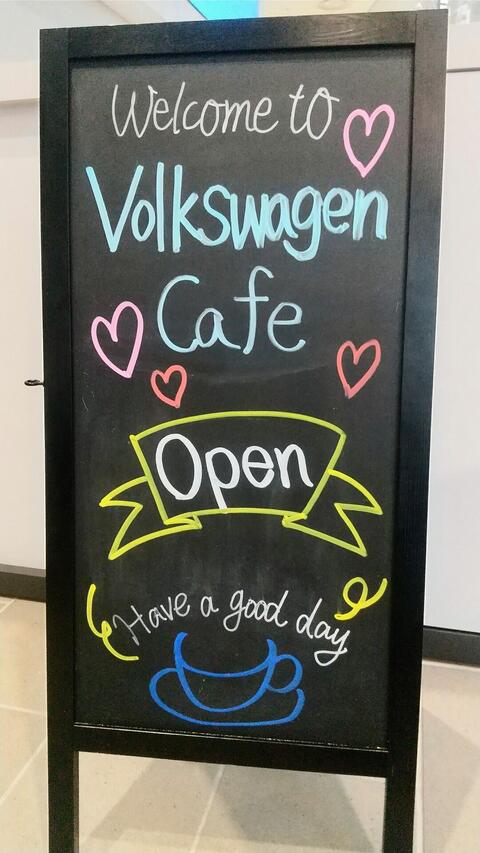 Welcome to
Volkswagen
Cafe
Open
Have a good day